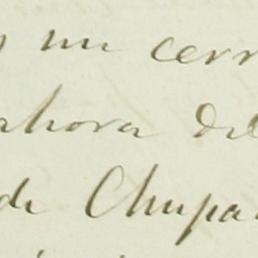 un cerr
ahora del
de Chupa